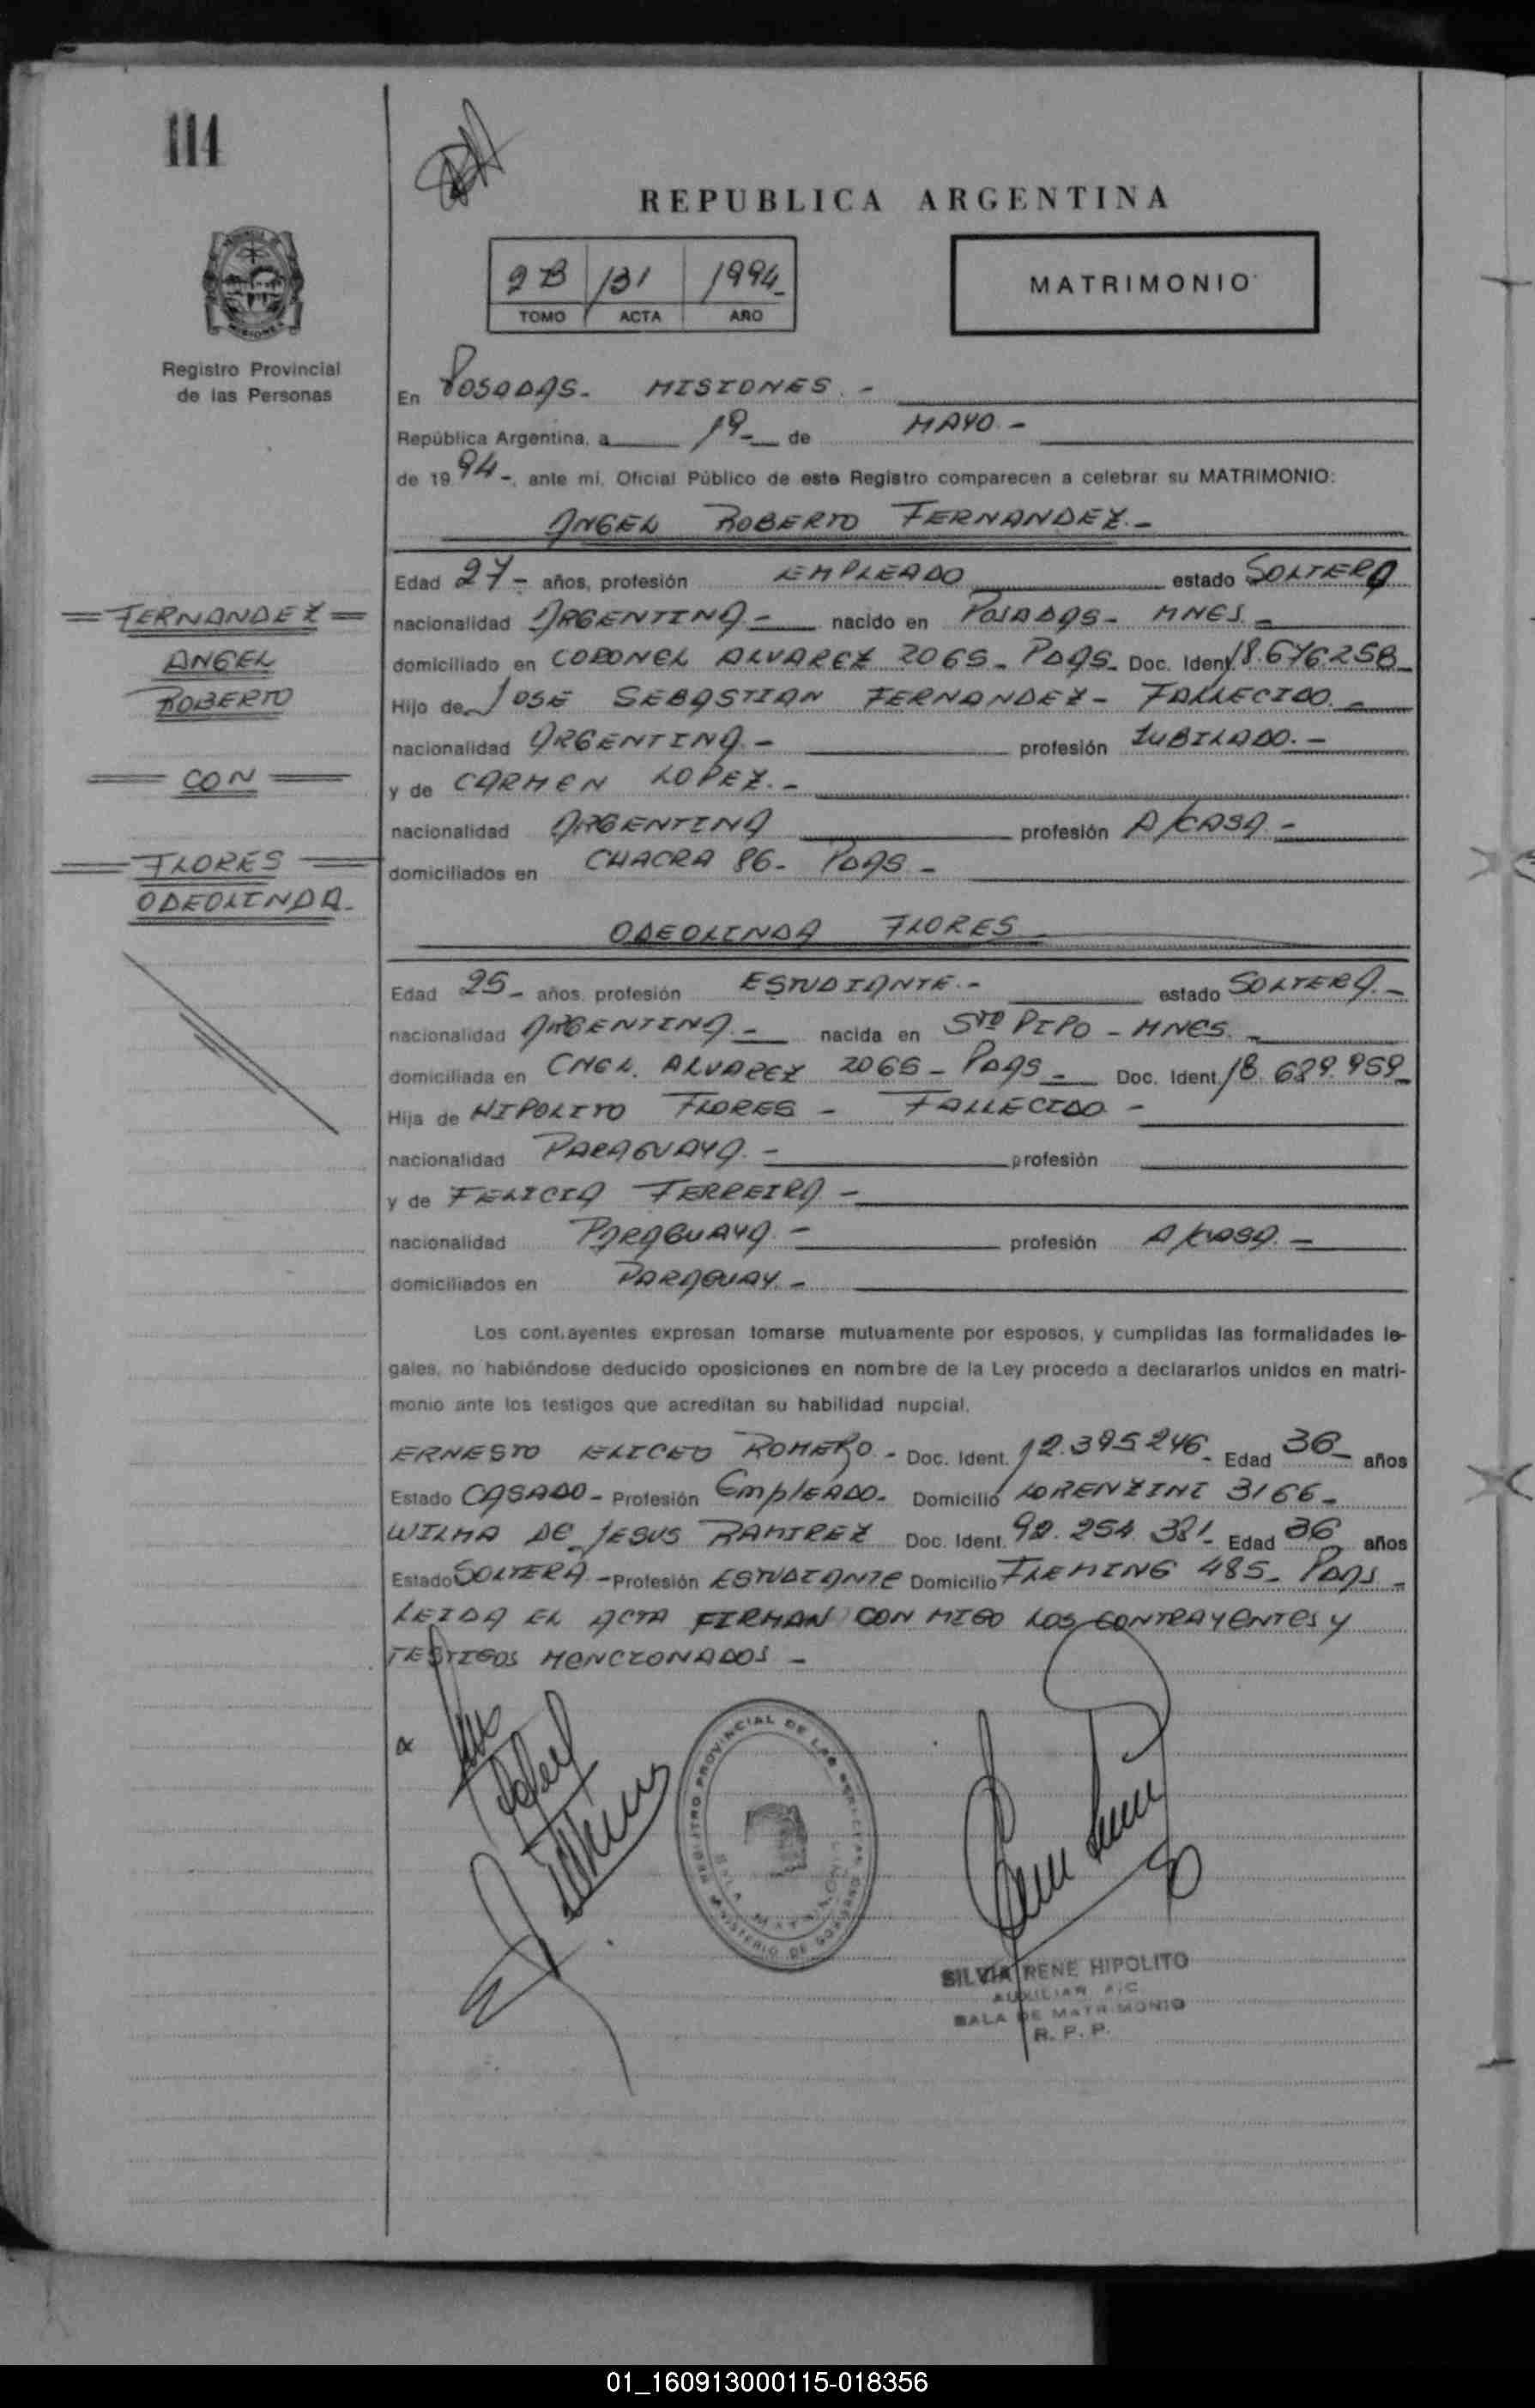 111
REPUBLICA ARGENTINA
2B 131 1994-
TOMO ACTA AÑO
MATRIMONIO
Registro Provincial
de las Personas
En POSADAS- MISIONES.-
República Argentina, a 19- de MAYO-
de 1994-, ante mi, Oficial Público de este Registro comparecen a celebrar su MATRIMONIO:
ANGEL ROBERTO FERNANDEZ.-
Edad 27- años, profesión EMPLEADO estado SOLTERO
nacionalidad ARGENTINA- nacido en POSADAS- MNES-
domiciliado en CORONEL ALVAREZ 2065- PDAS- Doc. Ident. 18.676.258-
Hijo de JOSE SEBASTIAN FERNANDEZ- FALLECIDO.-
nacionalidad ARGENTINA- profesión JUBILADO.-
y de CARMEN LOPEZ.-
nacionalidad ARGENTINA profesión A/CASA-
domiciliados en CHACRA 86- PDAS-
=FERNANDEZ=
ANGEL
ROBERTO
=CON=
=FLORES=
ODEOLINDA-
ODEOLINDA FLORES
Edad 25- años, profesión ESTUDIANTE.- estado SOLTERA-
nacionalidad ARGENTINA.- nacida en STO PIPO- MNES.-
domiciliada en CNEL. ALVAREZ 2065- PDAS- Doc. Ident. 18.629.959-
Hija de HIPOLITO FLORES- FALLECIDO-
nacionalidad PARAGUAYA.- profesión
y de FELICIA FERREIRA-
nacionalidad PARAGUAYA- profesión A/CASA-
domiciliados en PARAGUAY-
Los contrayentes expresan tomarse mutuamente por esposos, y cumplidas las formalidades le-
gales, no habiéndose deducido oposiciones en nombre de la Ley procedo a declararlos unidos en matri-
monio ante los testigos que acreditan su habilidad nupcial.
ERNESTO ELICEO ROMERO- Doc. Ident. 12.395.246- Edad 36- años
Estado CASADO- Profesión EmplEADO- Domicilio LORENZINI 3166-
WILMA DE JESUS RAMIREZ Doc. Ident. 92.254.381- Edad 36 años
Estado SOLTERA- Profesión ESTUDIANTE Domicilio FLEMING 485- PDAS-
LEIDA EL ACTA FIRMAN CON MIGO LOS CONTRAYENTES Y
TESTIGOS MENCIONADOS-
REGISTRO PROVINCIAL DE LAS PERSONAS
SALA MATRIMONIO
MINISTERIO DE GOBIERNO
SILVIA RENE HIPOLITO
AUXILIAR A/C
SALA DE MATRIMONIO
R. P. P.
01_160913000115-018356